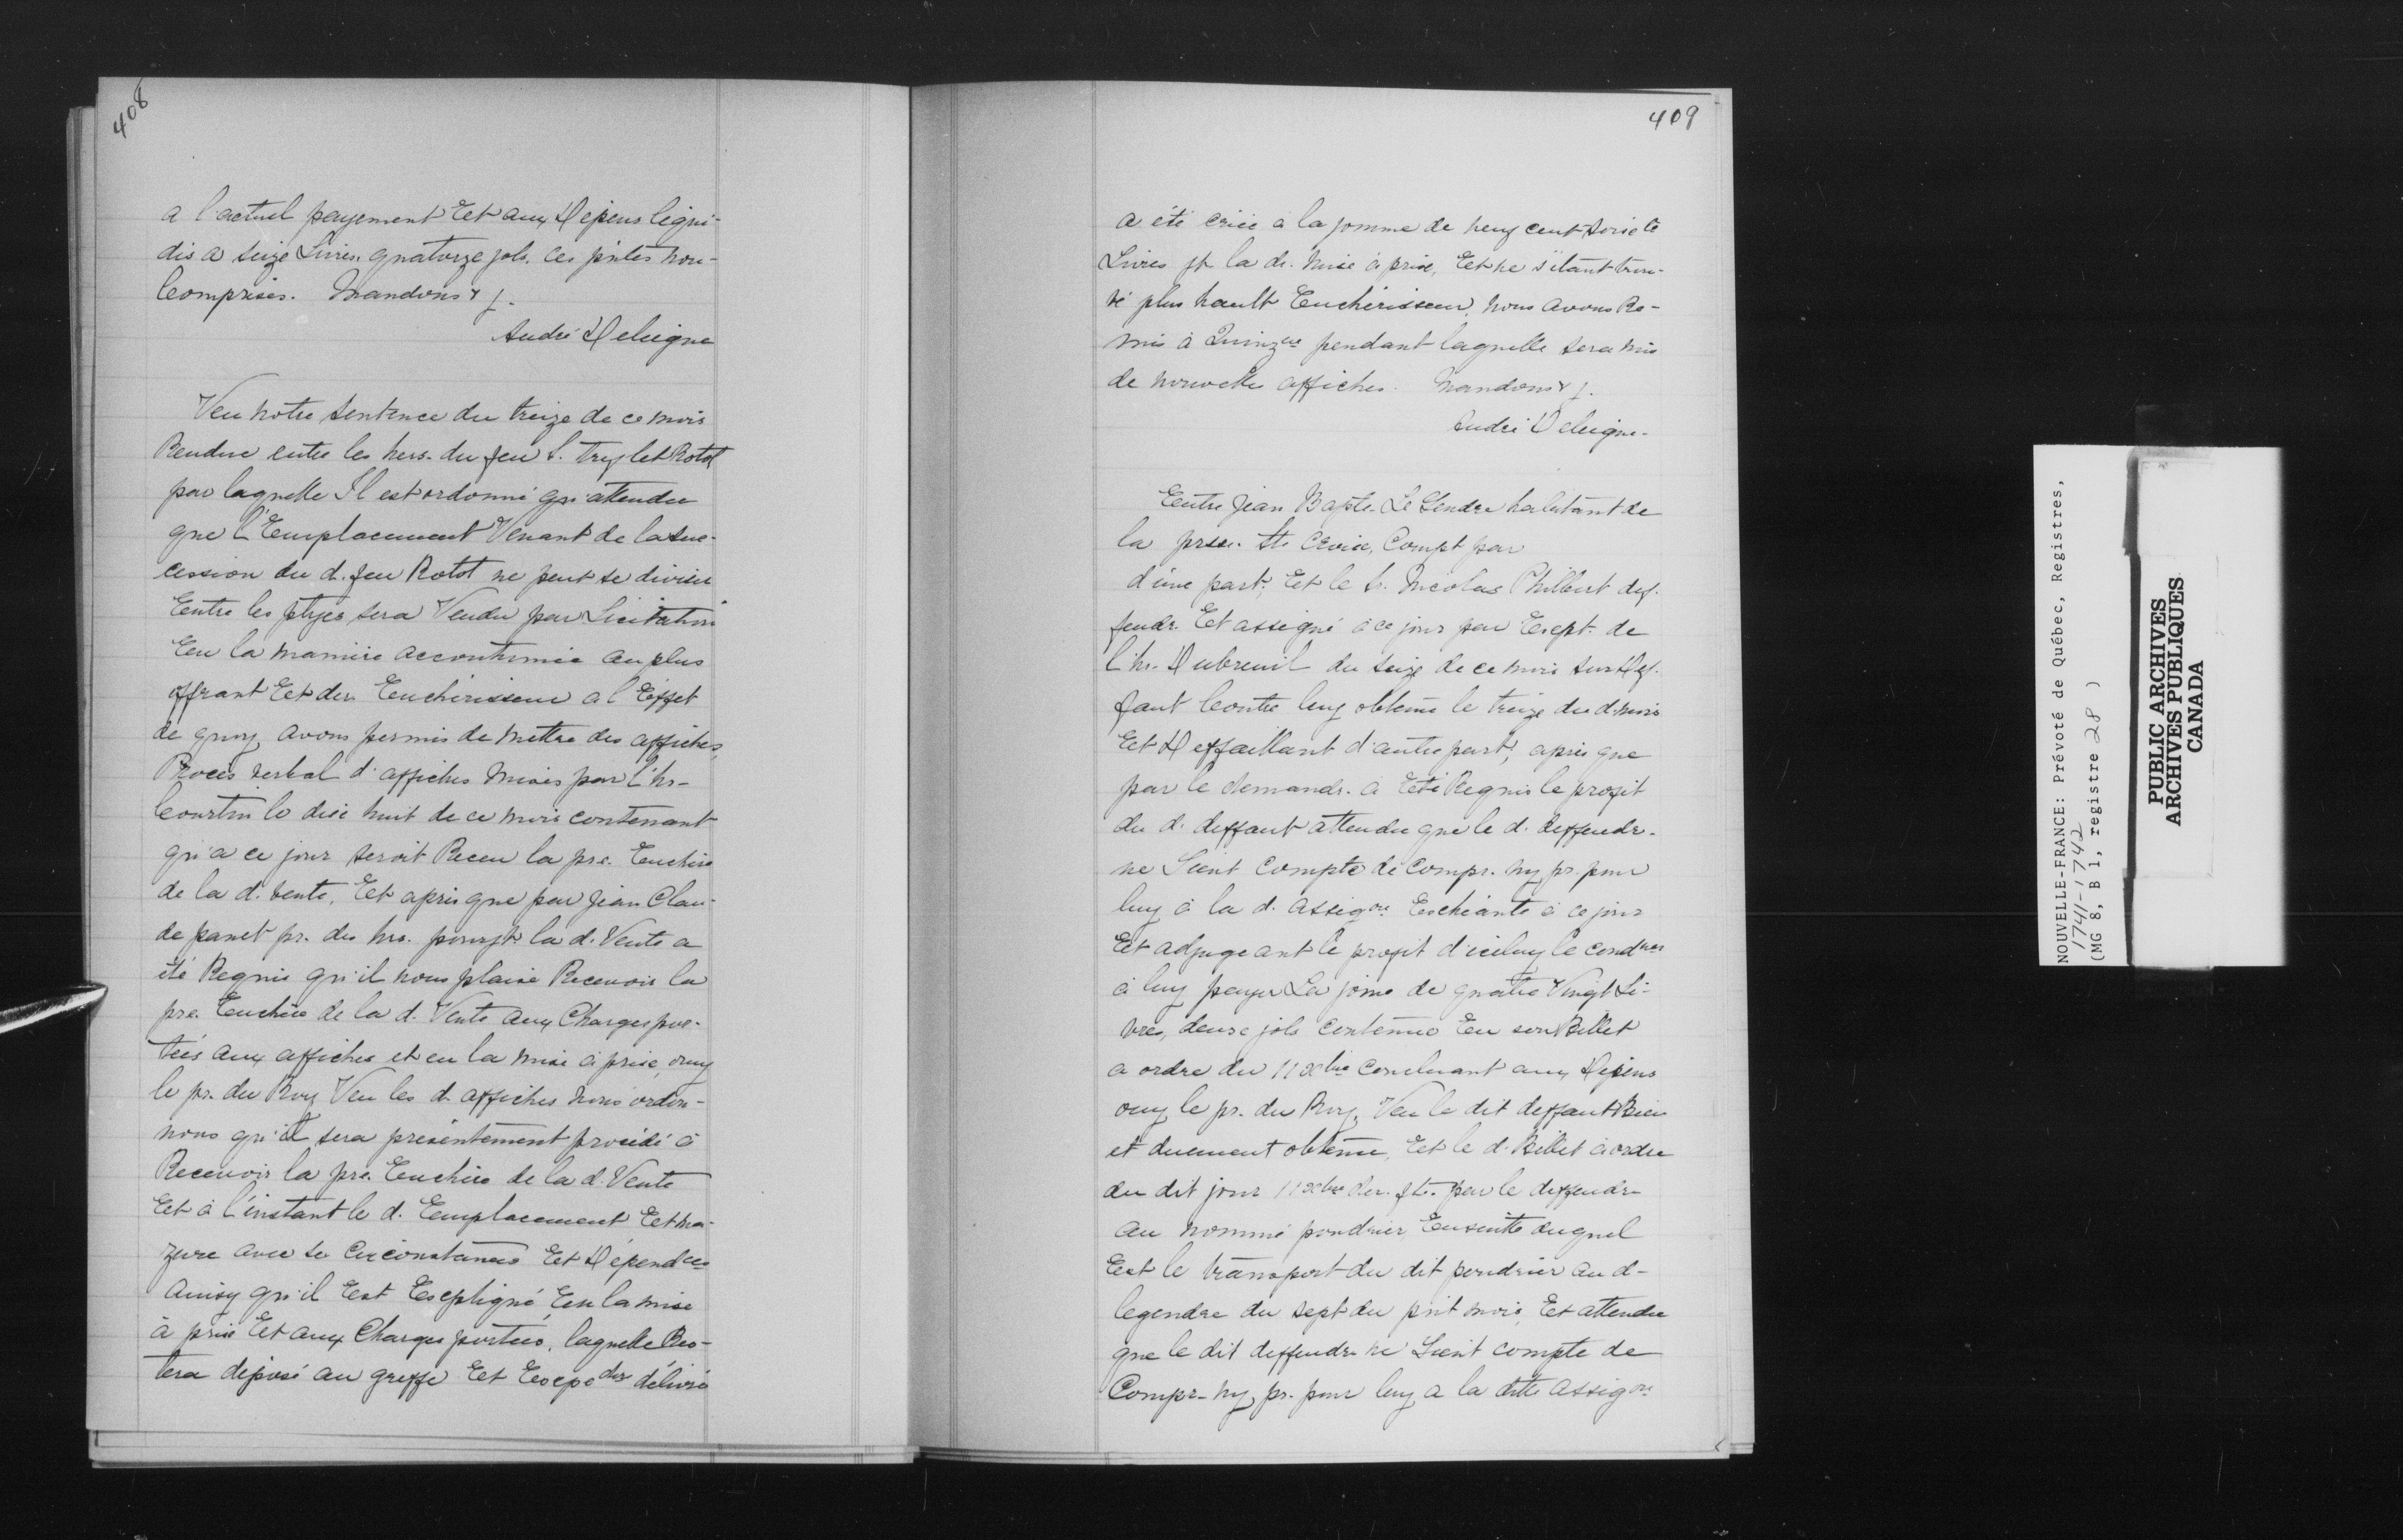 408
a l'actuel payement Et aux Depens liqui-
dés a seize Livres quatorze sols, ces pntes non-
Comprises. Mandons &
André Deleigne
Veu notre Sentence du treize de ce mois
Rendue entre les hers. du feu S. Rotot
par laquelle Il est ordonné qu'attendu
que l'Emplacement Venant de la suc-
cession du d. feu Rotot ne peut se diviser
Entre les ptyes, sera Vendu par Licitation
En la maniere accoutumée au plus
offrant Et der. Encherisseur a l'Effet
de quoy avons permis de mettre des affiches,
Procès verbal d'affiches mises par l'hr-
Courtin le dixe huit de ce mois contenant
qu'a ce jour seroit Receu la pre. Enchere
de la d. vente, Et après que par Jean Clau-
de panet pr. des hrs. la d. Vente a
été Requis qu'il nous plaise Recevoir la
pre. Enchere de la d. Vente aux Charges por-
tées aux affiches et en la mise à prise, ouy
le pr. du Roy Veu les d. affiches nous ordon-
nons qu'il sera présentement procédé à
Recevoir la pre. Enchere de la d. Vente
Et à l'instant le d. Emplacement Et ma-
zure avec ses Circonstances Et Dépendces
Ainsy qu'il Est Expliqué En la mise
à prise Et aux Charges portées, laquelle Res-
tera déposé au greffe Et délivré
409
a été criée à la somme de neuf cent soixte
Livres pr. la de. mise à prise, Et ne s'étant trou-
vé plus hault Encherisseur, nous avons Re-
mis à Quinzne pendant laquelle sera mis
de nouvelles affiches. Mandons &
André Deleigne.
Entre Jean Bapte. Le Gendre habitant de
la prsse. Ste Croix, Compt par
d'une part; Et le Sr. Nicolas Philbert def-
fendr. Et assigné à ce jour par Exept. de
l'hr. Dubreuil du seize de ce mois sur Def-
faut Contre luy obtenu le treize du d. mois
Et Deffaillant d'autre part; après que
par le demandr. a Eté Requis le profit
du d. deffaut attendu que le d. deffendr.
ne Tient Compte de Compr. ny pr. pour
luy à la d. Assigon Escheante à ce jour
Et adjugeant le profit d'iceluy le condner
à luy payer La some de quatre Vingt Li-
vres, deuxe sols contenue En son Billet
a ordre du 11 xbre Concluant aux Depens
ouy le pr. du Roy, Veu le dit deffaut Bien
et duement obtenu, Et le d. Billet à ordre
du dit jour 11 xbre der. ft. par le deffendr-
au nommé poudrier Ensuitte duquel
Est le transport du dit poudrier au d-
legendre du sept du pnt mois, Et attendu
que le dit deffendr ne Tient compte de
Compr- ny pr. pour luy a la ditte Assigon
NOUVELLE-FRANCE: Prévoté de Québec, Registres,
1741-1742
(MG 8, B 1, registre 28 )
PUBLIC ARCHIVES
ARCHIVES PUBLIQUES
CANADA